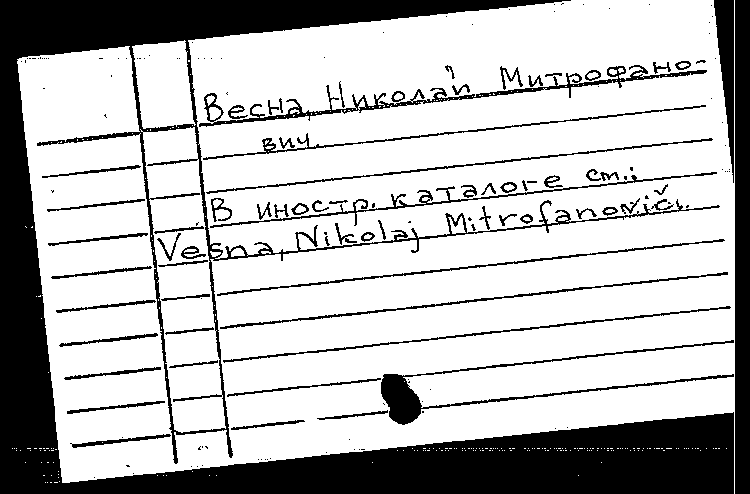 Весна, Николай Митрофано-
вич.
В иностр. каталоге см.:
Vesna, Nikolaj Mitrofanovič.